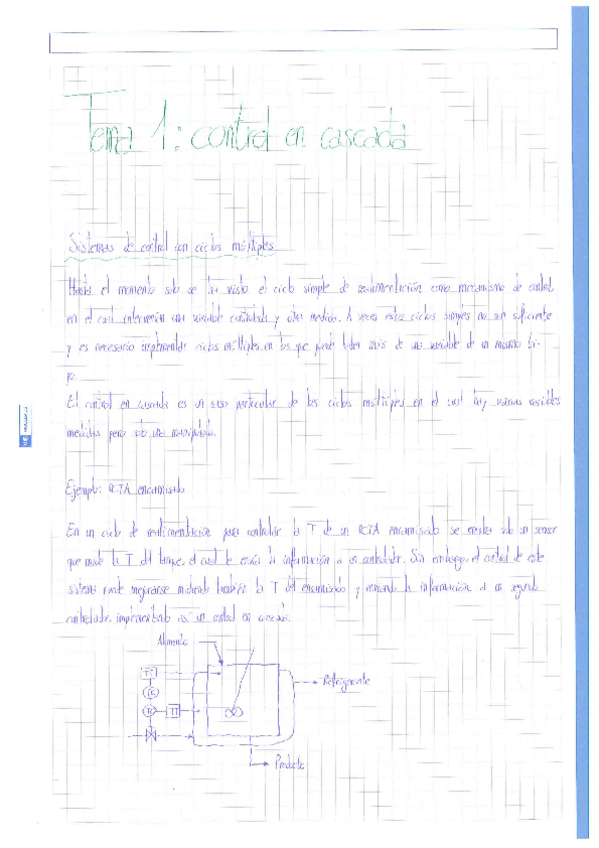 Tema 1: control en cascada
Sistemas de control con ciclos múltiples
Hasta el momento solo se ha visto el ciclo simple de realimentación como mecanismo de control,
en el cual intervenían una variable controlada y otra medida. A veces estos ciclos simples no son suficiente
y es necesario implementar ciclos múltiples en los que puede haber más de una variable de un mismo ti-
po.
El control en cascada es un caso particular de los ciclos múltiples en el cual hay varias variables
medidas pero solo una manipulada.
Ejemplo: RCTA encamisado
En un ciclo de realimentación para controlar la T de un RCTA encamisado se emplea solo un sensor
que mide la T del tanque, el cual le envía la información a un controlador. Sin embargo, el control de este
sistema puede mejorarse midiendo también la T del encamisado y enviando la información a un segundo
controlador implementando así un control en cascada.
Alimento
TT
TC
TC
TT
Refrigerante
Producto